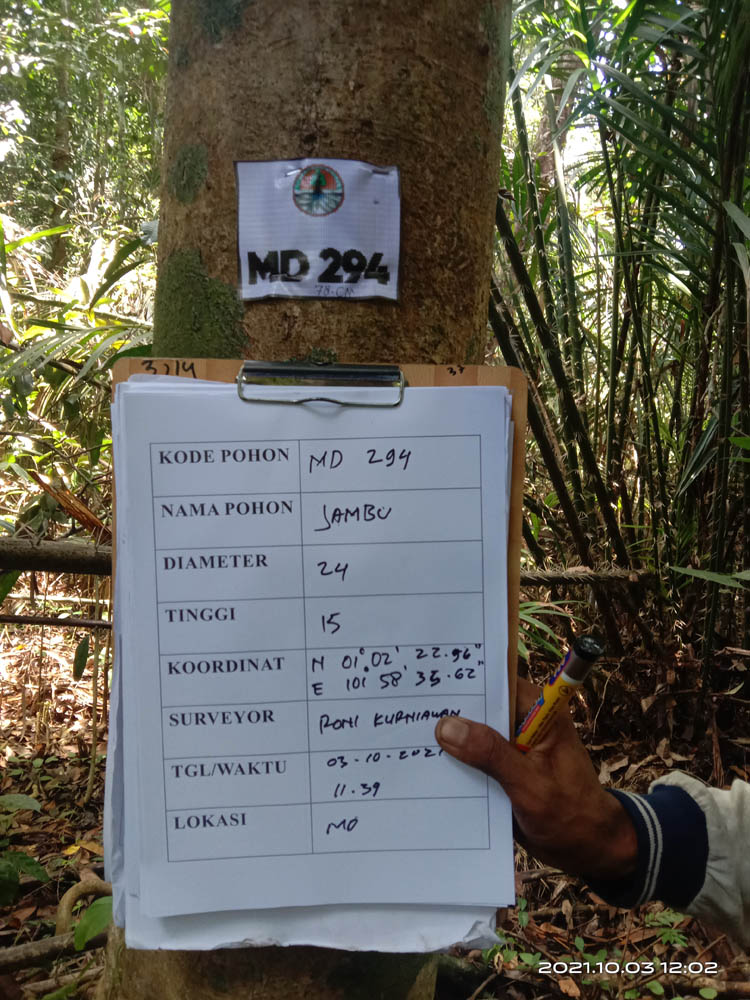 MD 294
78.CM
KODE POHON MD 294
NAMA POHON JAMBU
DIAMETER 24
TINGGI 15
KOORDINAT N 01° 02' 22.96"
E 101° 58' 35.62"
SURVEYOR RONI KURNIAWAN
TGL/WAKTU 03-10-2021
11.39
LOKASI MD
2021.10.03 12:02